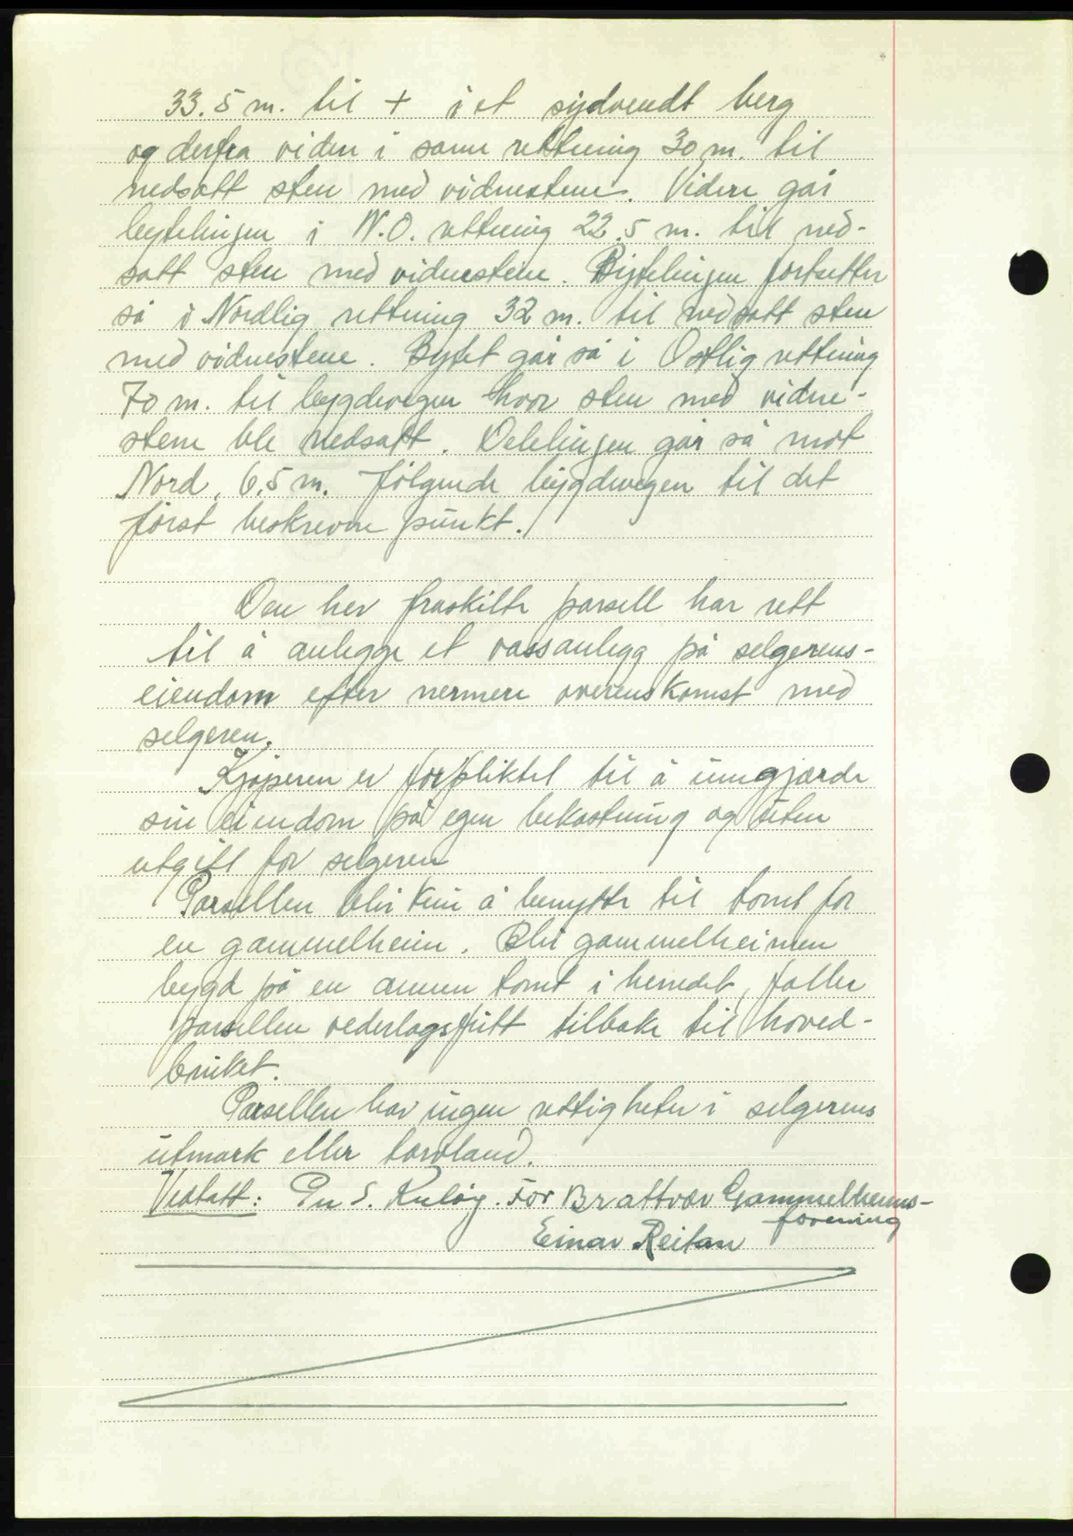 33.5 m. til + i et sydvendt berg
og derfra vider i samme rettning 30 m. til
nedsatt sten med vidnestene. Videre går
bytelinjen i N.O. rettning 22.5 m. til ned-
satt sten med vidnestene. Bytelinjen fortsetter
så i Nordlig rettning 32 m. til nedsatt sten
med vidnestene. Bytet går så i Østlig rettning
70 m. til bygdevegen hvor sten med vidne-
stene ble nedsatt. Delelinjen går så mot
Nord, 6.5 m. følgende bygdevegen til det
først beskrevne punkt.
Den her fraskilte parsell har rett
til å anlegge et vassanlegg på selgerens-
eiendom efter nermere overenskomst med
selgeren.
Kjøperen er forpliktet til å inngjærde
sin eiendom på egen bekostning og uten
utgift for selgeren
Parsellen blir kun å benytte til tomt for
en gammelheim. Blir gammelheimen
bygd på en annen tomt i herredet, faller
parsellen vederlagsfritt tilbake til hoved-
bruket.
Parsellen har ingen rettigheter i selgerens
utmark eller torvland.
Vedtatt: S. Kuløy. For Brattvær Gammelheims-
forening
Einar Reitan